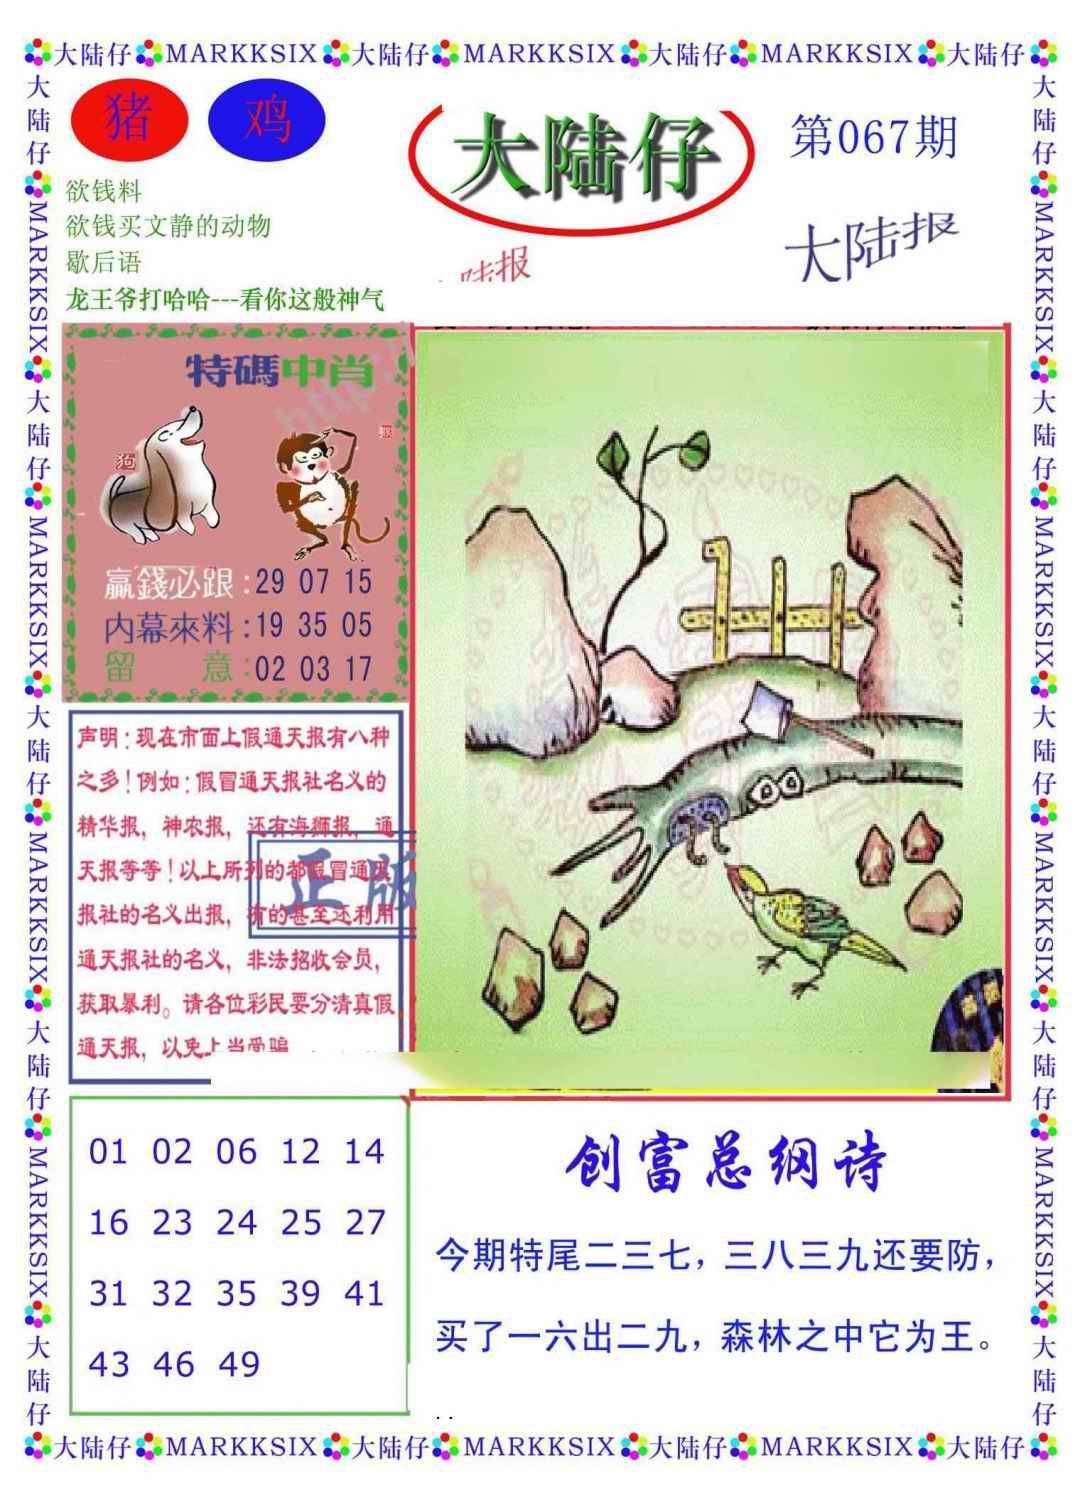 大陆仔MARKKSIX大陆仔MARKKSIX大陆仔MARKKSIX大陆仔
大陆仔MARKKSIX大陆仔MARKKSIX大陆仔MARKKSIX大陆仔MARKKSIX大陆仔
大陆仔MARKKSIX大陆仔MARKKSIX大陆仔MARKKSIX大陆仔MARKKSIX大陆仔
猪 鸡
大陆仔
第067期
欲钱料
欲钱买文静的动物
歇后语
龙王爷打哈哈---看你这般神气
陆报
大陆报
特碼中肖
http:/
狗
猴
赢錢必跟:29 07 15
内幕來料:19 35 05
留 意:02 03 17
声明:现在市面上假通天报有八种
之多!例如:假冒通天报社名义的
精华报，神农报，还有海狮报，通
天报等等!以上所列的都假冒通天
报社的名义出报，有的甚至还利用
通天报社的名义，非法招收会员，
获取暴利。请各位彩民要分清真假
通天报，以免上当受骗
正版
01 02 06 12 14
16 23 24 25 27
31 32 35 39 41
43 46 49
创富总纲诗
今期特尾二三七，三八三九还要防，
买了一六出二九，森林之中它为王。
. .
大陆仔MARKKSIX大陆仔MARKKSIX大陆仔MARKKSIX大陆仔